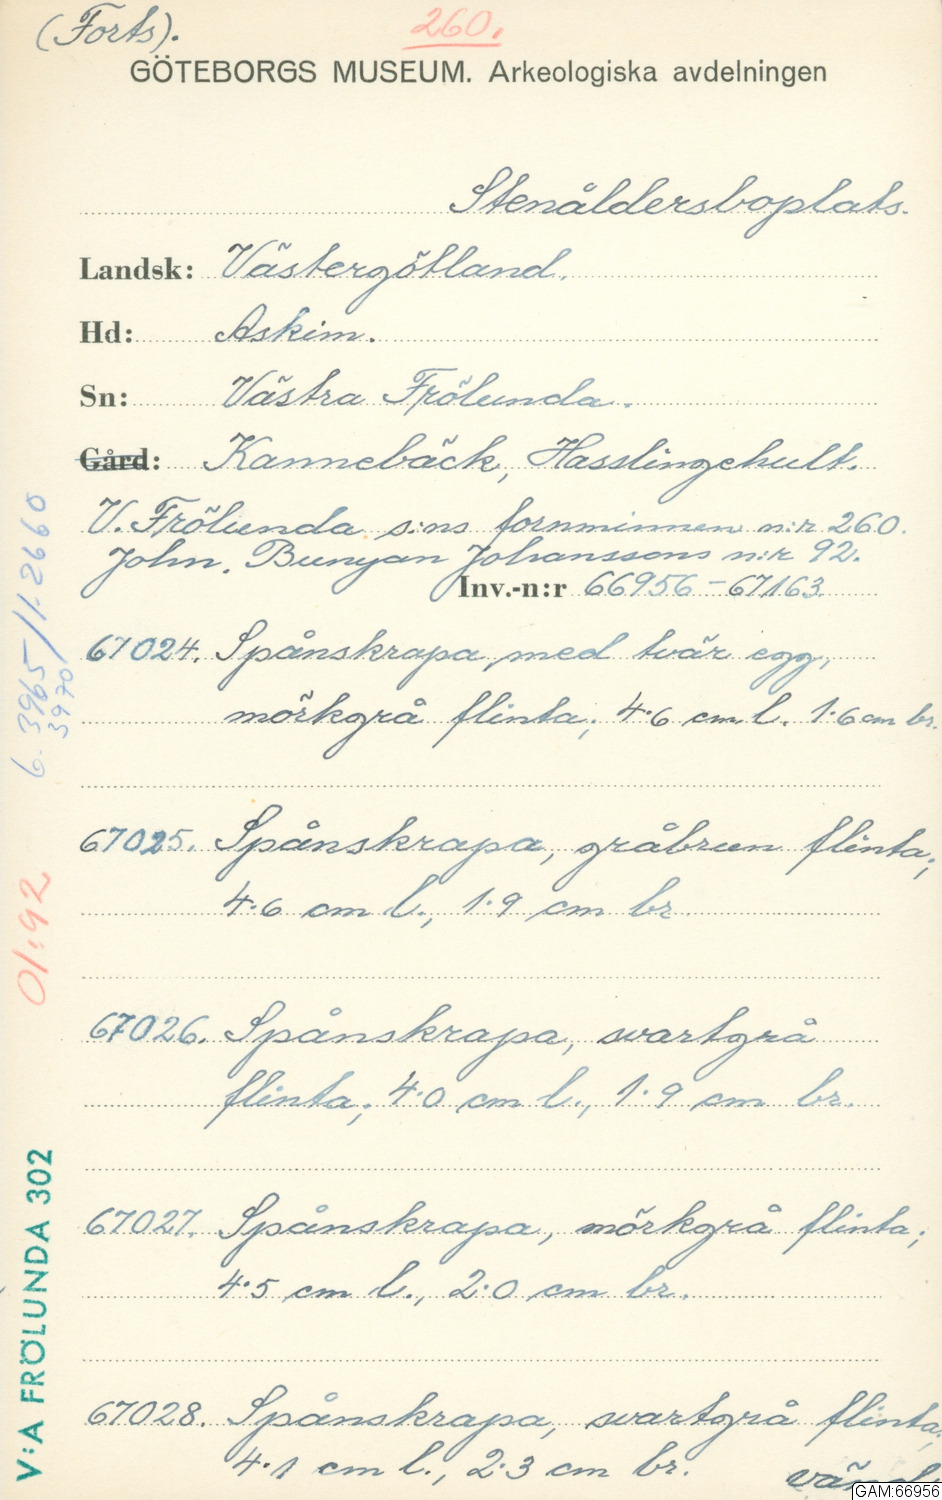 (Forts).
260.
GÖTEBORGS MUSEUM. Arkeologiska avdelningen
Stenåldersboplats.
Landsk: Västergötland.
Hd: Askim.
Sn: Västra Frölunda.
Gård: Kannebäck, Hasslingehult.
V. Frölunda s:ns fornminnen n:r 260.
John. Bunyan Johanssons n:r 92.
Inv.-n:r 66956-67163
67024. Spånskrapa, med tvär egg,
mörkgrå flinta; 4.6 cm l. 1.6 cm br.
67025. Spånskrapa, gråbrun flinta;
4.6 cm l., 1.9 cm br
67026. Spånskrapa, svartgrå
flinta; 4.0 cm l., 1.9 cm br.
67027. Spånskrapa, mörkgrå flinta;
4.5 cm l., 2.0 cm br.
67028. Spånskrapa, svartgrå flinta;
4.1 cm l., 2.3 cm br.
3965/1-2660
3970
01:92
V:A FRÖLUNDA 302
GAM:66956